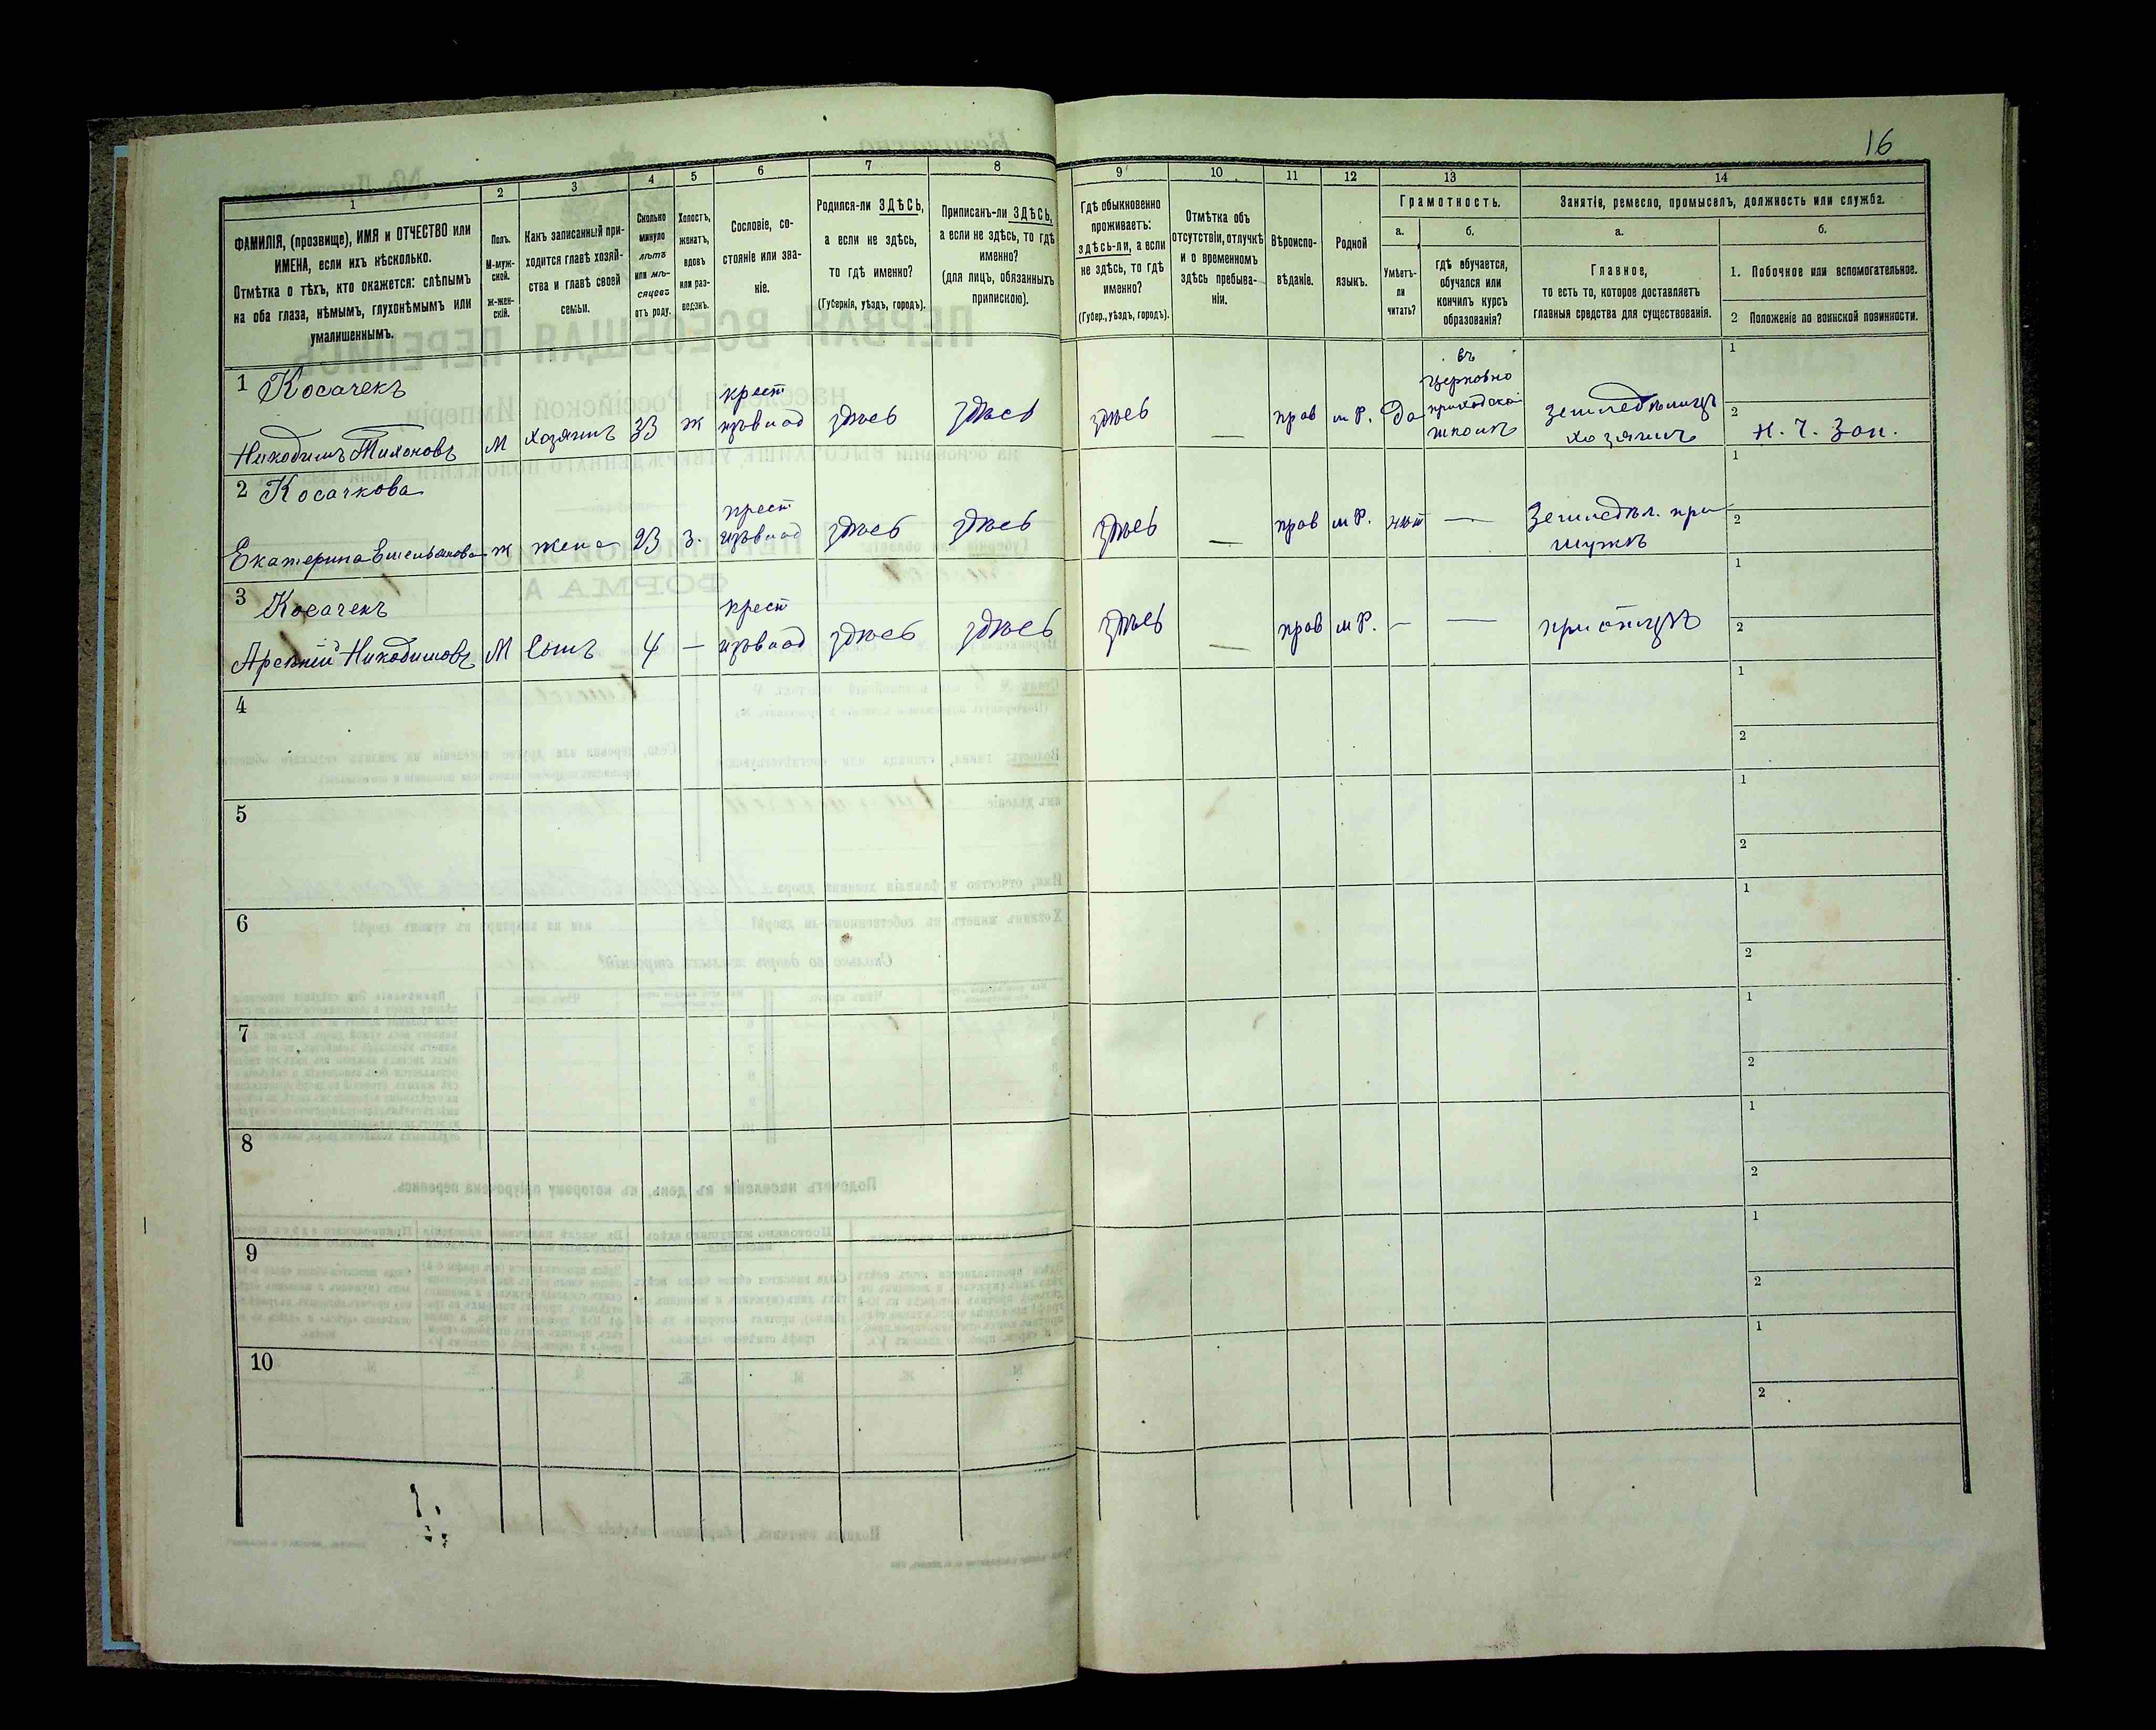 16
1
2
3
4
5
6
7
8
9
10
11
12
13
14
ФАМИЛІЯ, (прозвище), ИМЯ и ОТЧЕСТВО или
ИМЕНА, если ихъ нѣсколько.
Отмѣтка о тѣхъ, кто окажется: слѣпымъ
на оба глаза, нѣмымъ, глухонѣмымъ или
умалишеннымъ.
Полъ.
М-муж-
ской.
ж-жен-
скій.
Какъ записанный при-
ходится главѣ хозяй-
ства и главѣ своей
семьи.
Сколько
минуло
лѣтъ
или мѣ-
сяцевъ
отъ роду.
Холостъ,
женатъ,
вдовъ
или раз-
веденъ.
Сословіе, со-
стояніе или зва-
ніе.
Родился-ли ЗДѢСЬ,
а если не здѣсь,
то гдѣ именно?
(Губернія, уѣздъ, городъ).
Приписанъ-ли ЗДѢСЬ,
а если не здѣсь, то гдѣ
именно?
(для лицъ, обязанныхъ
припискою).
Гдѣ обыкновенно
проживаетъ:
здѣсь-ли, а если
не здѣсь, то гдѣ
именно?
(Губер., уѣздъ, городъ).
Отмѣтка объ
отсутствіи, отлучкѣ
и о временномъ
здѣсь пребыва-
ніи.
Вѣроиспо-
вѣданіе.
Родной
языкъ.
Грамотность.
а.
Умѣетъ-
ли
читать?
б.
гдѣ обучается,
обучался или
кончилъ курсъ
образованія?
Занятія, ремесло, промыселъ, должность или служба.
а.
Главное,
то есть то, которое доставляетъ
главныя средства для существованія.
б.
1. Побочное или вспомогательное.
2 Положеніе по воинской повинности.
1 Косачекъ
Никодимъ Тихоновъ
М
хозяинъ
33
ж
крест
изъ влад
здѣсь
здѣсь
здѣсь
—
прав
м Р.
Да
въ
церковно
приходской
школѣ
Земледѣлецъ
хозяинъ
1
2
Н. Ч. Зап.
2 Косачкова
Екатерина Емельянова
ж
жена
23
з.
крест
изъ влад
здѣсь
здѣсь
здѣсь
—
прав
м Р.
нѣт
—
Земледѣл. при
мужѣ
1
2
3 Косачекъ
Арсеній Никодимовъ
М
сынъ
4
—
крест
изъ влад
здѣсь
здѣсь
здѣсь
—
прав
м Р.
—
—
при отцѣ
1
2
4
1
2
5
1
2
6
1
2
7
1
2
8
1
2
9
1
2
10
1
2